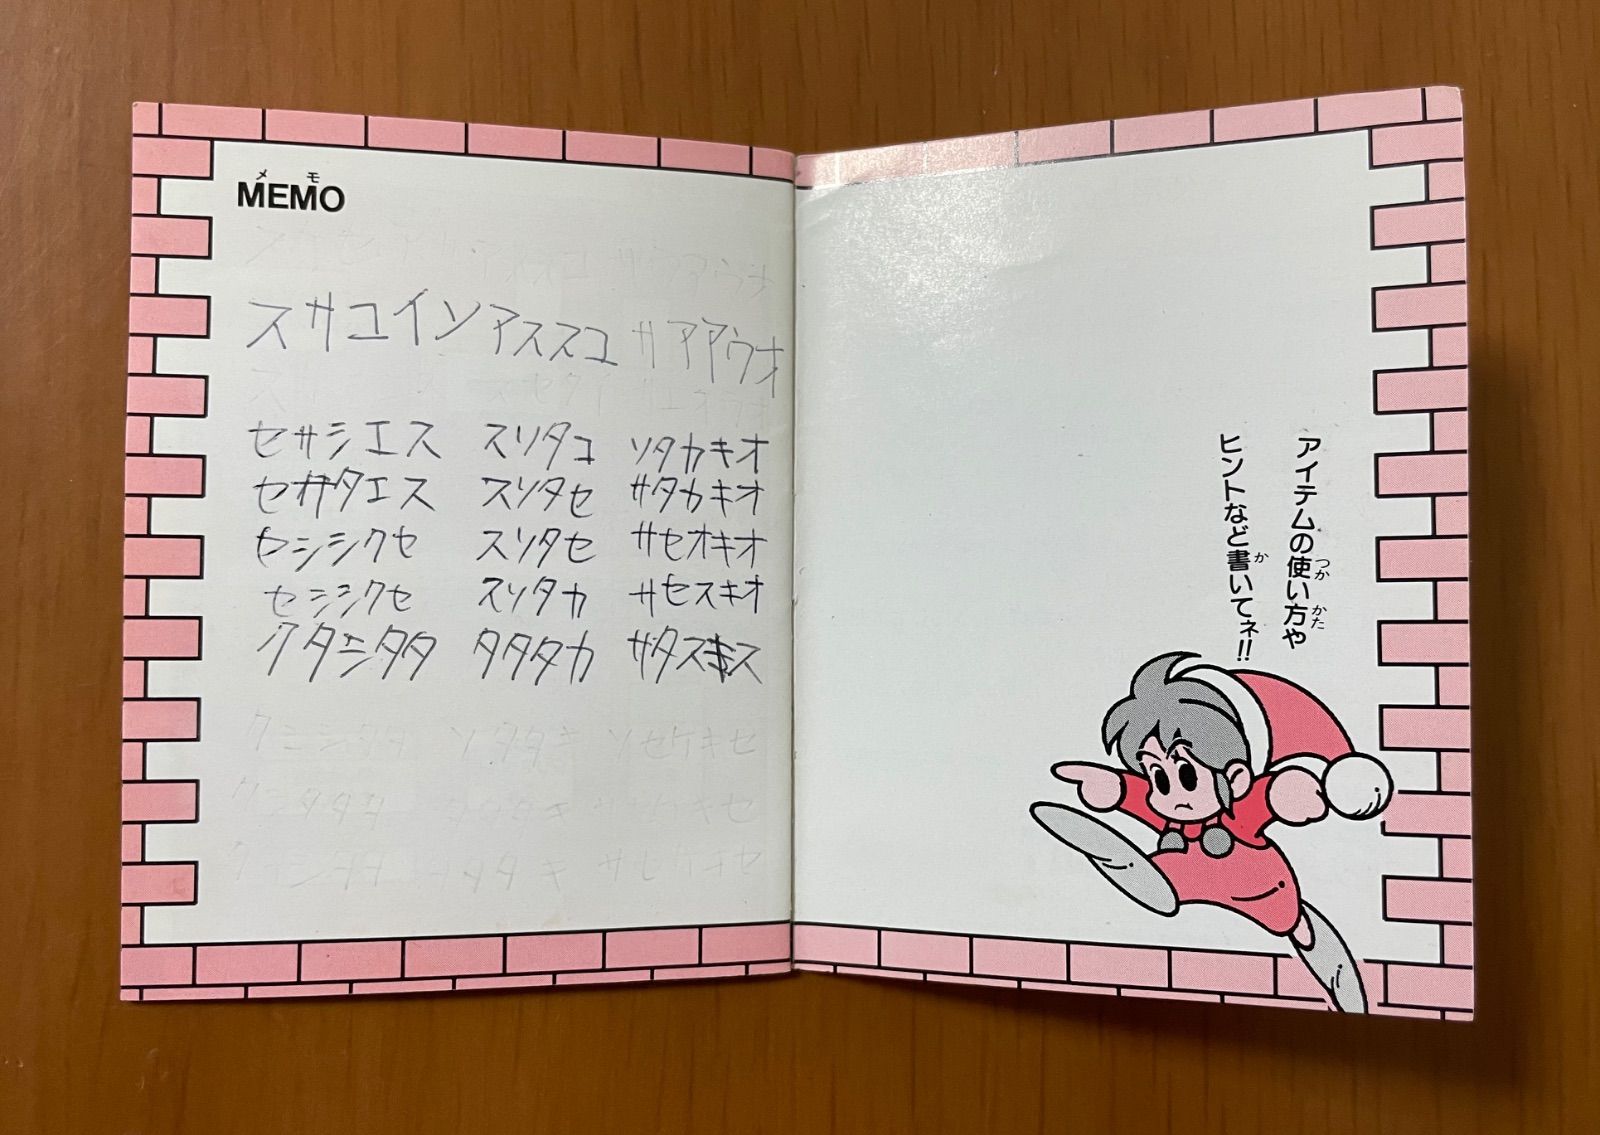 メモ
MEMO
スサコイソ アススコ サアアウオ
セサシエス スソタコ ソタカキオ
セサタエス スソタセ サタカキオ
セシシクセ スソタセ サセオキオ
セシシクセ スソタカ サセスキオ
クタシタタ タタタカ サタスキス
クシシタタ ソタタキ ソセケキセ
アイテムの使い方や
つか かた
ヒントなど書いてネ!!
か